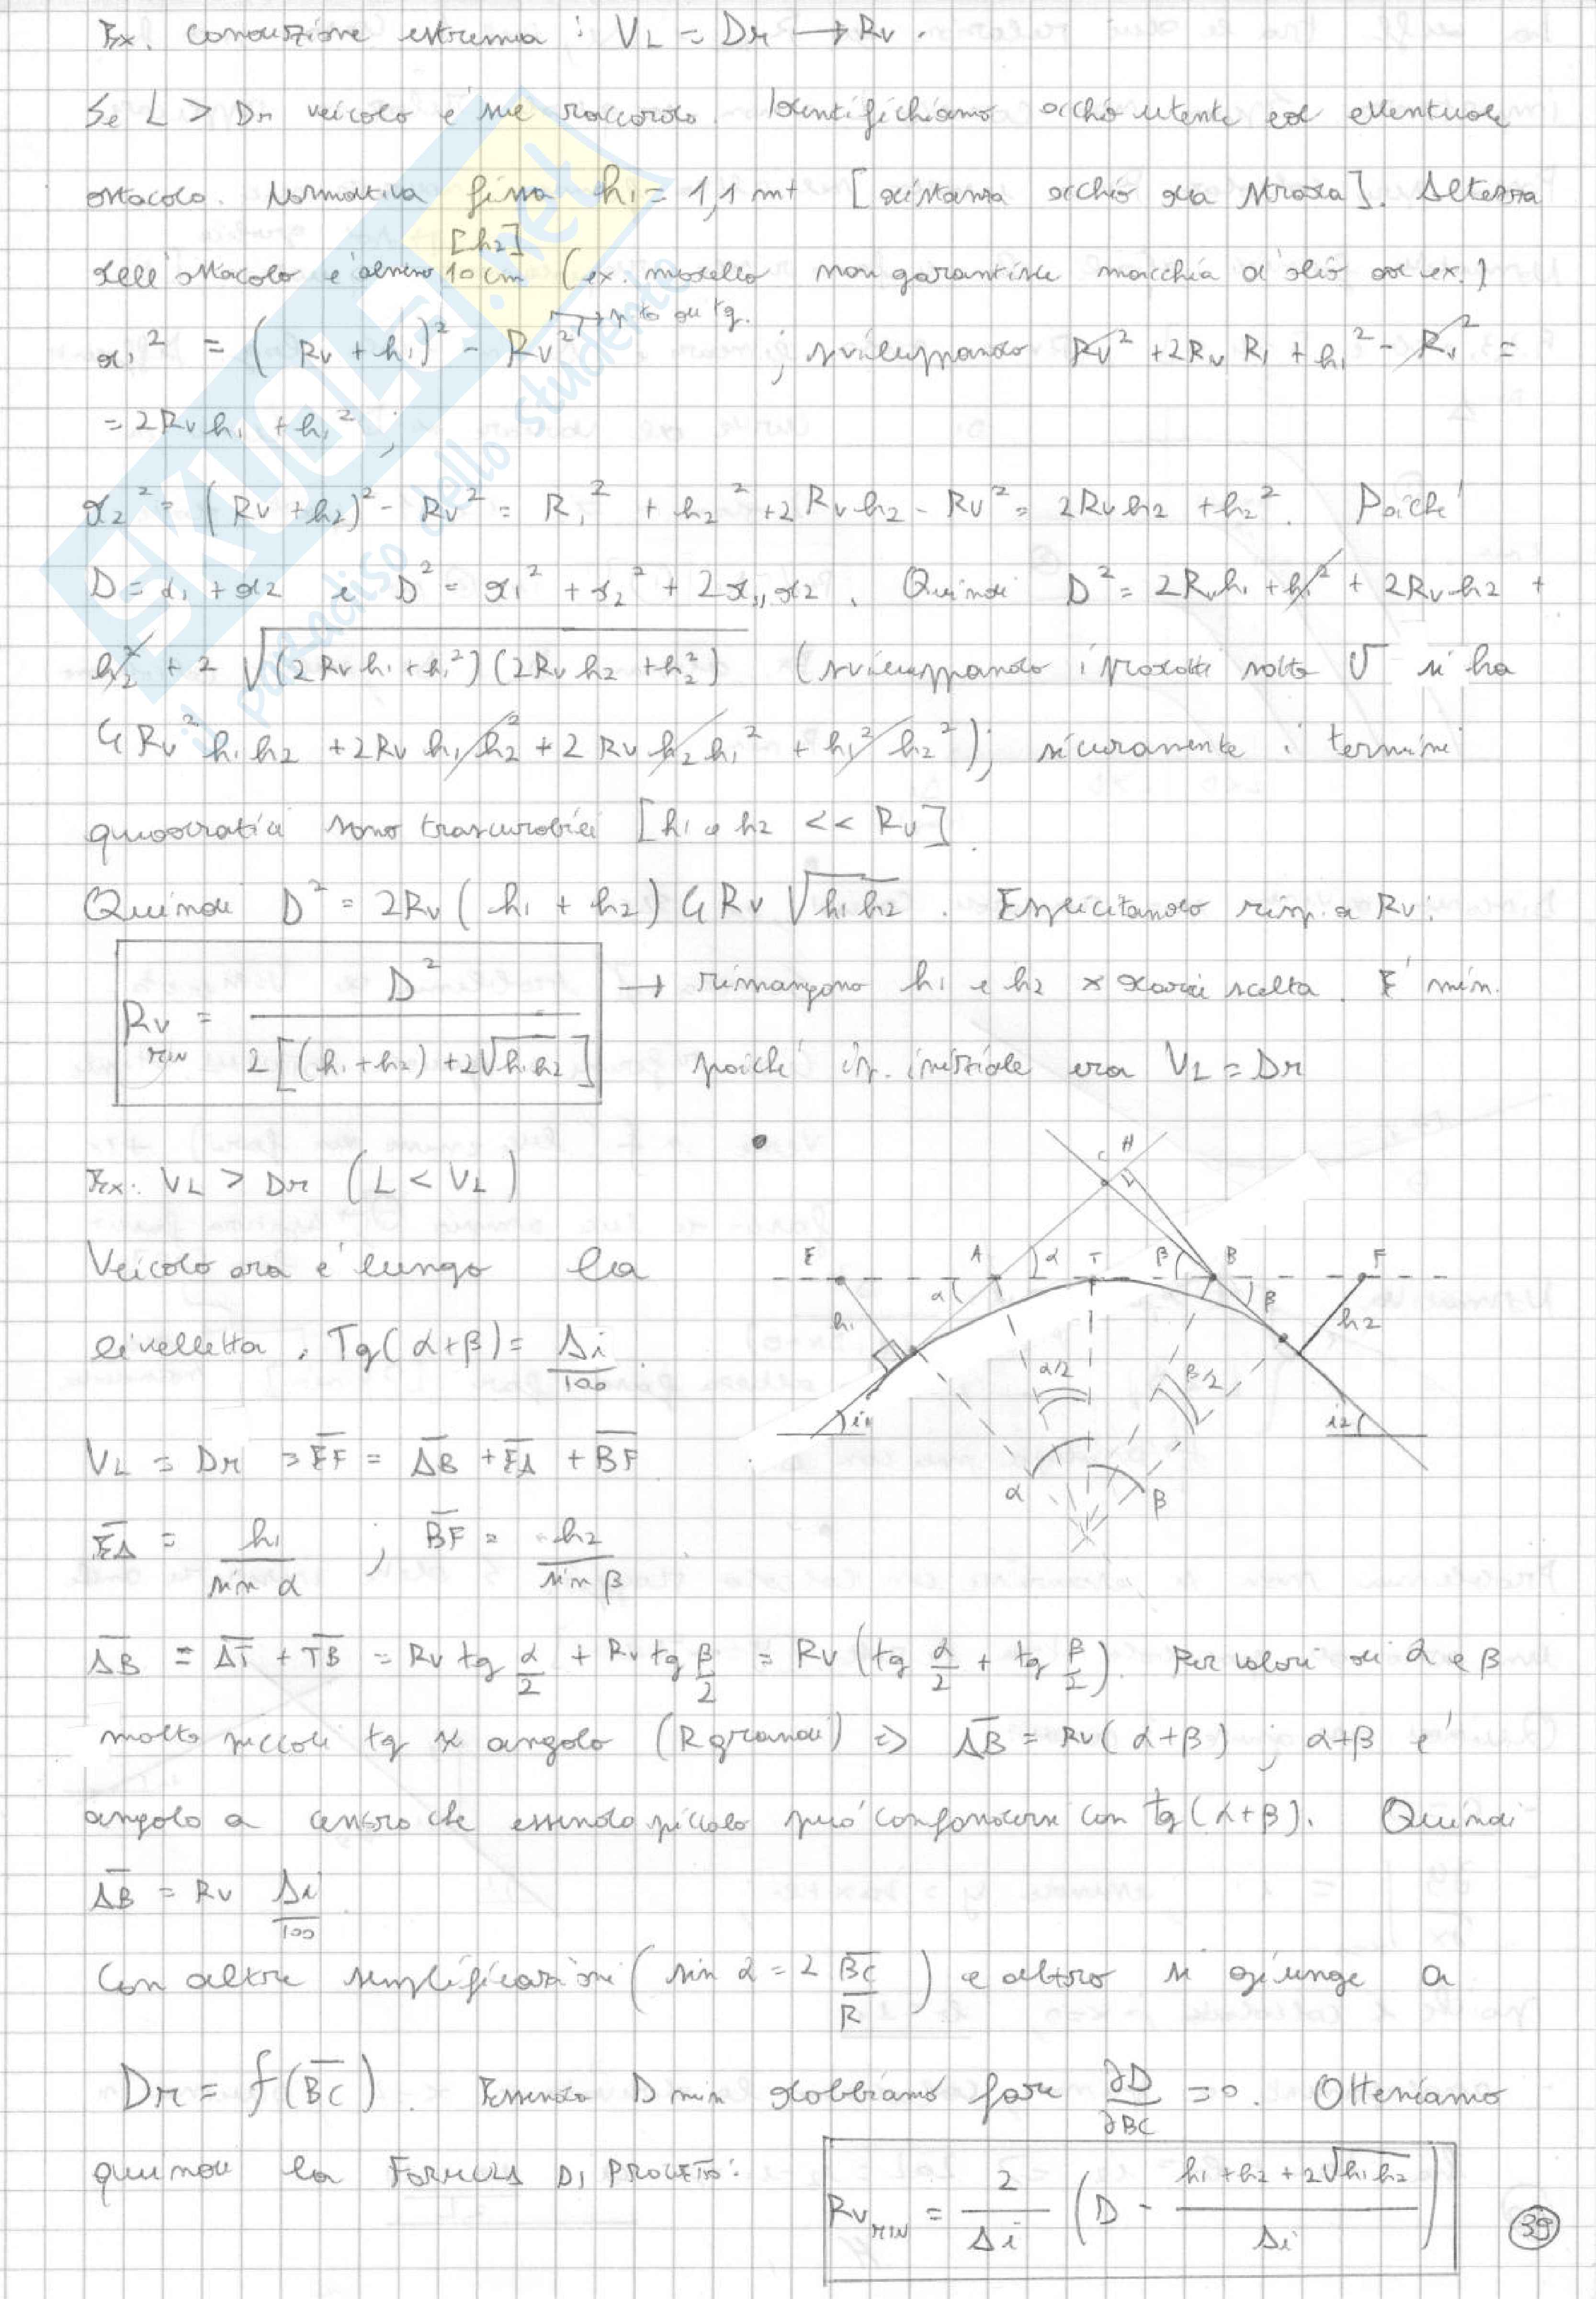 Ex. condizione estrema : VL = Dr → Rv .
Se L > Dr veicolo è nel raccordo. Identifichiamo occhio utente ed eventuale
ostacolo. Normativa fissa h1 = 1,1 mt [distanza occhio da strada]. Altezza
[h2]
dell'ostacolo è almeno 10 cm (ex. modello non garantisce macchia d'olio ad ex.)
→ pto di tg.
x1² = (Rv + h1)² - Rv² ; sviluppando Rv² + 2Rv R1 + h1² - Rv² =
= 2Rv h1 + h1² ;
x2² = (Rv + h2)² - Rv² = R1² + h2² + 2Rv h2 - Rv² = 2Rv h2 + h2². Poiché
D = x1 + x2 e D² = x1² + x2² + 2x1 x2 . Quindi D² = 2Rv h1 + h1² + 2Rv h2 +
h2² + 2 √(2Rv h1 + h1²)(2Rv h2 + h2²) (sviluppando i prodotti sotto √ si ha
4Rv² h1 h2 + 2Rv h1 h2² + 2Rv h2 h1² + h1² h2²); sicuramente i termini
quadratici sono trascurabili [h1 e h2 << Rv].
Quindi D² = 2Rv (h1 + h2) 4Rv √h1 h2 . Esplicitando risp. a Rv:
Rv min = D² / 2[(h1 + h2) + 2√h1 h2] → rimangono h1 e h2 x darci scelta. È min.
poiché ip. iniziale era VL = Dr
Ex: VL > Dr (L < VL)
Veicolo ora è lungo la
livelletta . Tg(α+β) = Δi/100 .
VL = Dr = EF = AB + EA + BF
EA = h1 / sin α ; BF = h2 / sin β
C H
E A α T β B F
α β
h1 h2
α/2 β/2
i1 i2
α β
AB = AT + TB = Rv tg α/2 + Rv tg β/2 = Rv (tg α/2 + tg β/2). Per valori di α e β
molto piccoli tg x angolo (R grandi) => AB = Rv(α+β) ; α+β è
angolo a centro che essendo piccolo può confondersi con tg(α+β). Quindi
AB = Rv Δi/100 .
Con altre semplificazioni (sin α = 2 BC/R) e altro si giunge a
Dr = f(BC) . Essendo D min dobbiamo fare ∂D/∂BC = 0. Otteniamo
quindi la FORMULA DI PROGETTO:
Rv MIN = 2/Δi (D - h1 + h2 + 2√h1 h2 / Δi)
39
SKUOLA.net
il paradiso dello studente